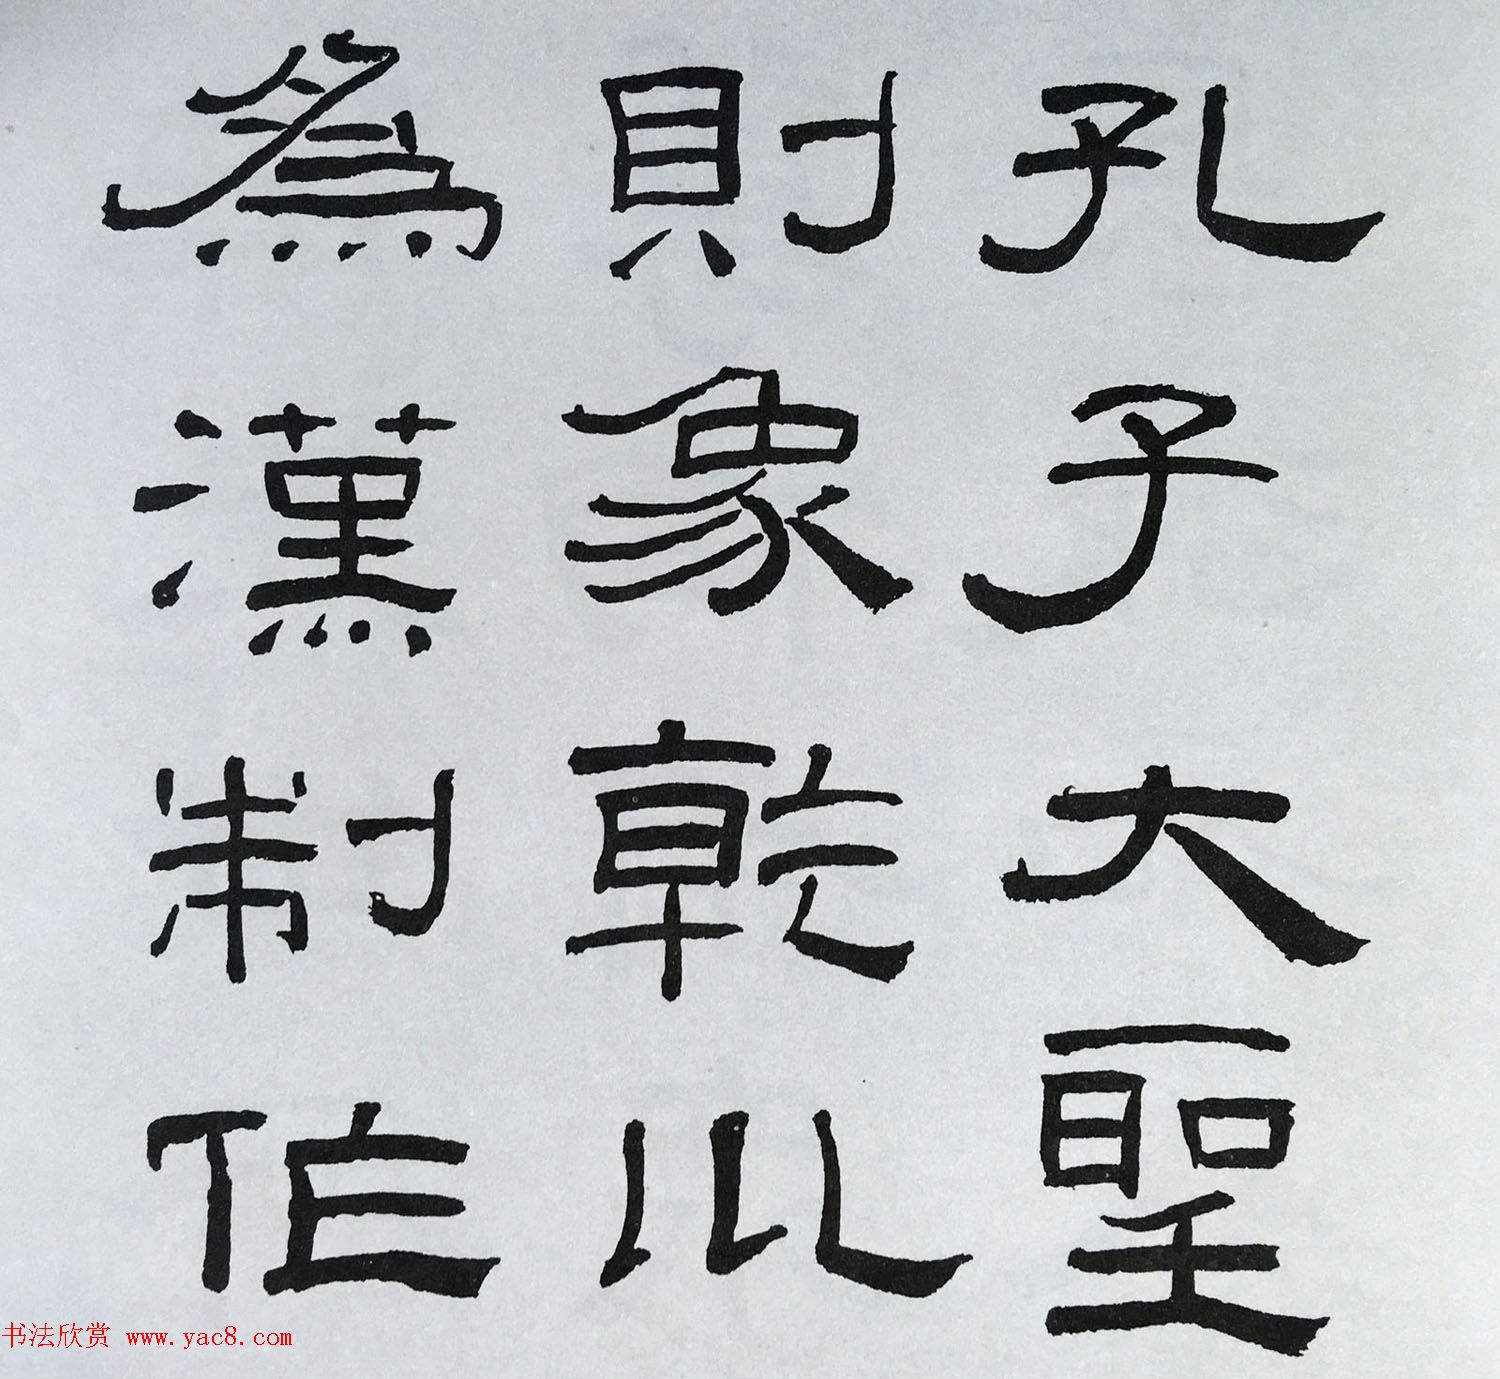 孔子大聖
則象乾川
為漢制作
书法欣赏 www.yac8.com